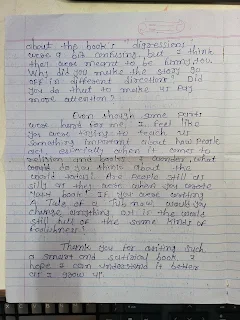 about the book's "digressions"
were a bit confusing, but I think
they were meant to be funny, too.
Why did you make the story go
off in different directions? Did
you do that to make us pay
more attention?
Even though some parts
were hard for me, I feel like
you were trying to teach us
something important about how people
act, especially when it comes to
religion and books. I wonder, what
would you think about the
world today? Are people still as
silly as they were when you wrote
your book? If you were writing
A Tale of a Tub now, would you
change anything, or is the world
still full of the same kinds of
foolishness?
Thank you for writing such
a smart and satirical book. I
hope I can understand it better
as I grow up.